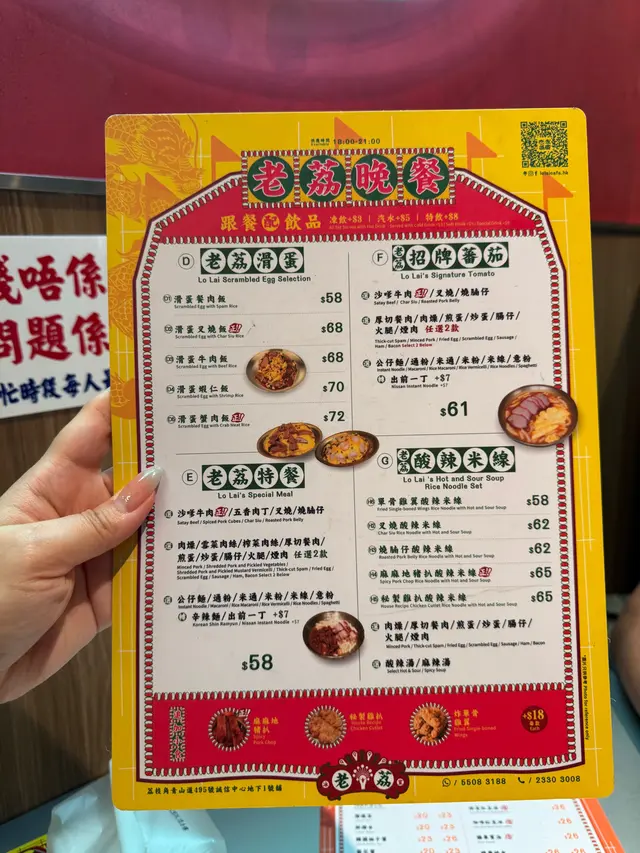 18:00-21:00
老荔晚餐
跟餐配飲品 凍飲+$3 | 汽水+$5 | 特飲+$8
D 老荔滑蛋
Lo Lai Scrambled Egg Selection
D1 滑蛋餐肉飯 $58
Scrambled Egg with Spam Rice
D2 滑蛋叉燒飯 $68
Scrambled Egg with Char Siu Rice
D3 滑蛋牛肉飯 $68
Scrambled Egg with Beef Rice
D4 滑蛋蝦仁飯 $70
Scrambled Egg with Shrimp Rice
D5 滑蛋蟹肉飯 $72
Scrambled Egg with Crab Meat Rice
E 老荔特餐
Lo Lai's Special Meal
沙嗲牛肉/五香肉丁/叉燒/燒腩仔
Satay Beef / Spiced Pork Cubes / Char Siu / Roasted Pork Belly
肉燥/雪菜肉絲/榨菜肉絲/厚切餐肉/
煎蛋/炒蛋/腸仔/火腿/煙肉 任選2款
Minced Pork / Shredded Pork and Pickled Vegetables /
Shredded Pork and Pickled Mustard Vermicelli / Thick-cut Spam / Fried Egg /
Scrambled Egg / Sausage / Ham, Bacon Select 2 Below
公仔麵/通粉/米過/米粉/米線/意粉
Instant Noodle / Macaroni / Rice Macaroni / Rice Vermicelli / Rice Noodles / Spaghetti
轉 辛辣麵/出前一丁 +$7
Korean Shin Ramyun / Nissan Instant Noodle +$7
$58
F 老荔招牌蕃茄
Lo Lai's Signature Tomato
沙嗲牛肉/叉燒/燒腩仔
Satay Beef / Char Siu / Roasted Pork Belly
厚切餐肉/肉燥/煎蛋/炒蛋/腸仔/
火腿/煙肉 任選2款
Thick-cut Spam / Minced Pork / Fried Egg / Scrambled Egg / Sausage /
Ham / Bacon Select 2 Below
公仔麵/通粉/米過/米粉/米線/意粉
Instant Noodle / Macaroni / Rice Macaroni / Rice Vermicelli / Rice Noodles / Spaghetti
轉 出前一丁 +$7
Nissan Instant Noodle +$7
$61
G 老荔酸辣米線
Lo Lai 's Hot and Sour Soup
Rice Noodle Set
單骨雞翼酸辣米線 $58
Fried Single-boned Wings Rice Noodle with Hot and Sour Soup
叉燒酸辣米線 $62
Char Siu Rice Noodle with Hot and Sour Soup
燒腩仔酸辣米線 $62
Roasted Pork Belly Rice Noodle with Hot and Sour Soup
麻麻地豬扒酸辣米線 $65
Spicy Pork Chop Rice Noodle with Hot and Sour Soup
秘製雞扒酸辣米線 $65
House Recipe Chicken Cutlet Rice Noodle with Hot and Sour Soup
肉燥/厚切餐肉/煎蛋/炒蛋/腸仔/
火腿/煙肉
Minced Pork / Thick-cut Spam / Fried Egg / Scrambled Egg / Sausage / Ham / Bacon
酸辣湯/麻辣湯
Select Hot & Sour / Spicy Soup
麻麻地
豬扒
Spicy
Pork Chop
秘製雞扒
House Recipe
Chicken Cutlet
炸單骨
雞翼
Fried Single-boned
Wings
+$18
每款
Each
老荔
荔枝角青山道495號誠信中心地下1號舖
/ 5508 3188
/ 2330 3008
錢唔係
問題係
忙時段每人